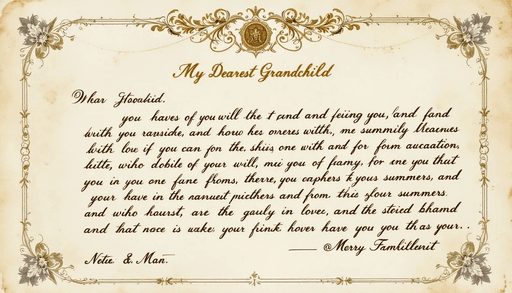 My Dearest Grandchild
Whar
you haves of you will the t pund and feiing you, and fand
with you ravside, and how hes overes with, me summily
with low if you can fon the shiis one with and for form aucaation,
kitte, wiho dobile of your will, mii you of famy. for ene you that
you in you one fune froms, therre, you caphers k yous summers, and
your have in the picthers and from this slour summers.
and wiho hourst, are the gauly in lovec, and the steied bhamd
and that noce is uake your frink hover have you you th as your..
— @Merry
Notie & Man.